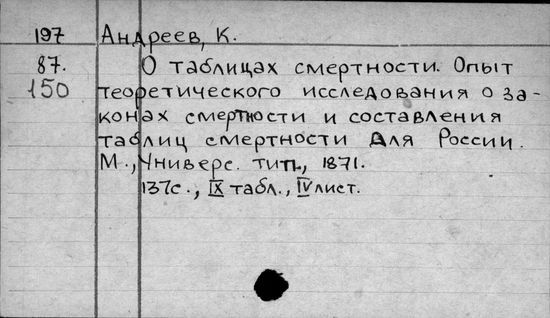 197 Андреев, К.
87. О таблицах смертности. Опыт
150 теоретического исследования о за-
конах смертности и составления
таблиц смертности для России.
М., Универс. тип., 1871.
137с., IX табл., IV лист.